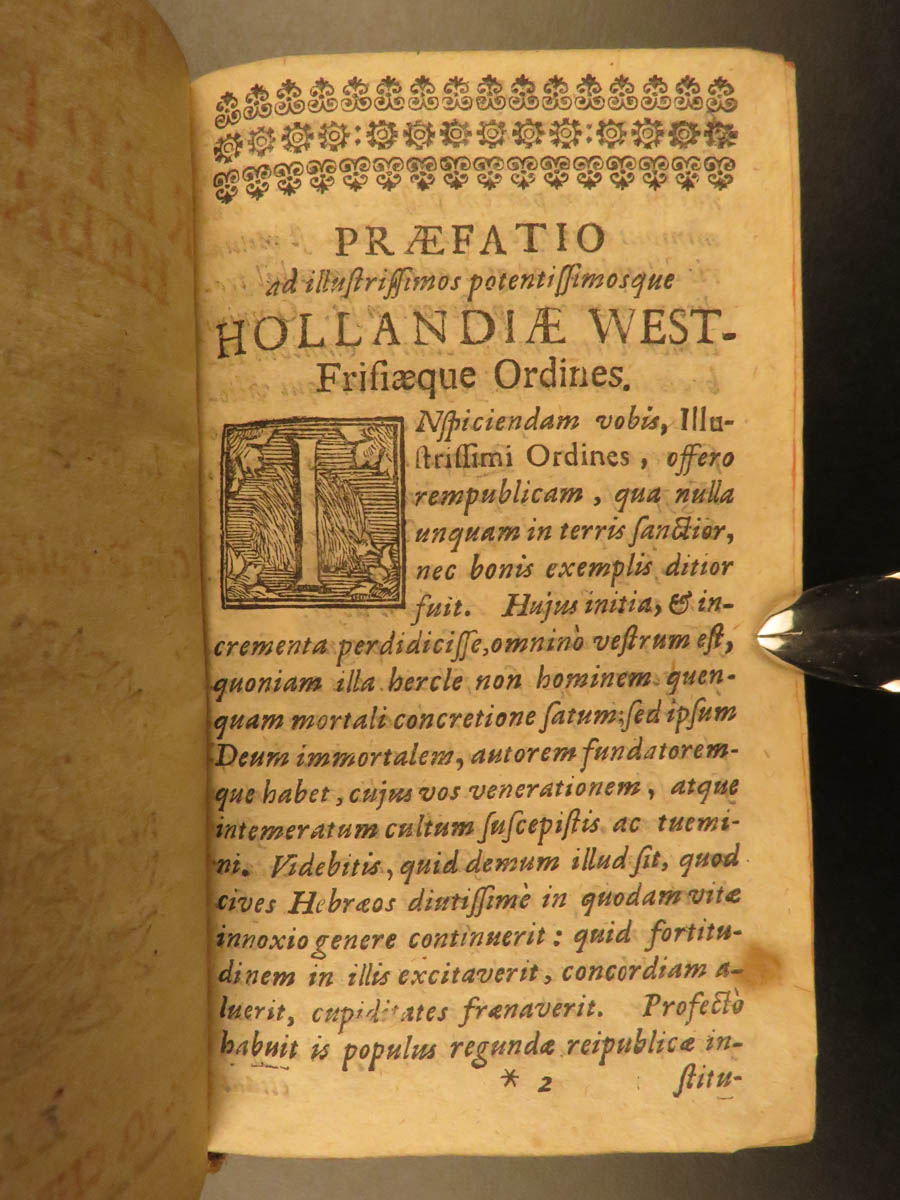 PRÆFATIO
ad illuſtriſſimos potentiſſimosque
HOLLANDIÆ WEST-
Friſiæque Ordines.
INſpiciendam vobis, Illu-
ſtriſſimi Ordines, offero
rempublicam, qua nulla
unquam in terris ſanctior,
nec bonis exemplis ditior
fuit. Hujus initia, & in-
crementa perdidiciſſe, omninò veſtrum eſt,
quoniam illa hercle non hominem quen-
quam mortali concretione ſatum; ſed ipſum
Deum immortalem, autorem fundatorem-
que habet, cujus vos venerationem, atque
intemeratum cultum ſuſcepiſtis ac tuemi-
ni. Videbitis, quid demum illud ſit, quod
cives Hebræos diutiſſimè in quodam vitæ
innoxio genere continuerit: quid fortitu-
dinem in illis excitaverit, concordiam a-
luerit, cupiditates frænaverit. Profectò
habuit is populus regundæ reipublicæ in-
* 2 ſtitu-